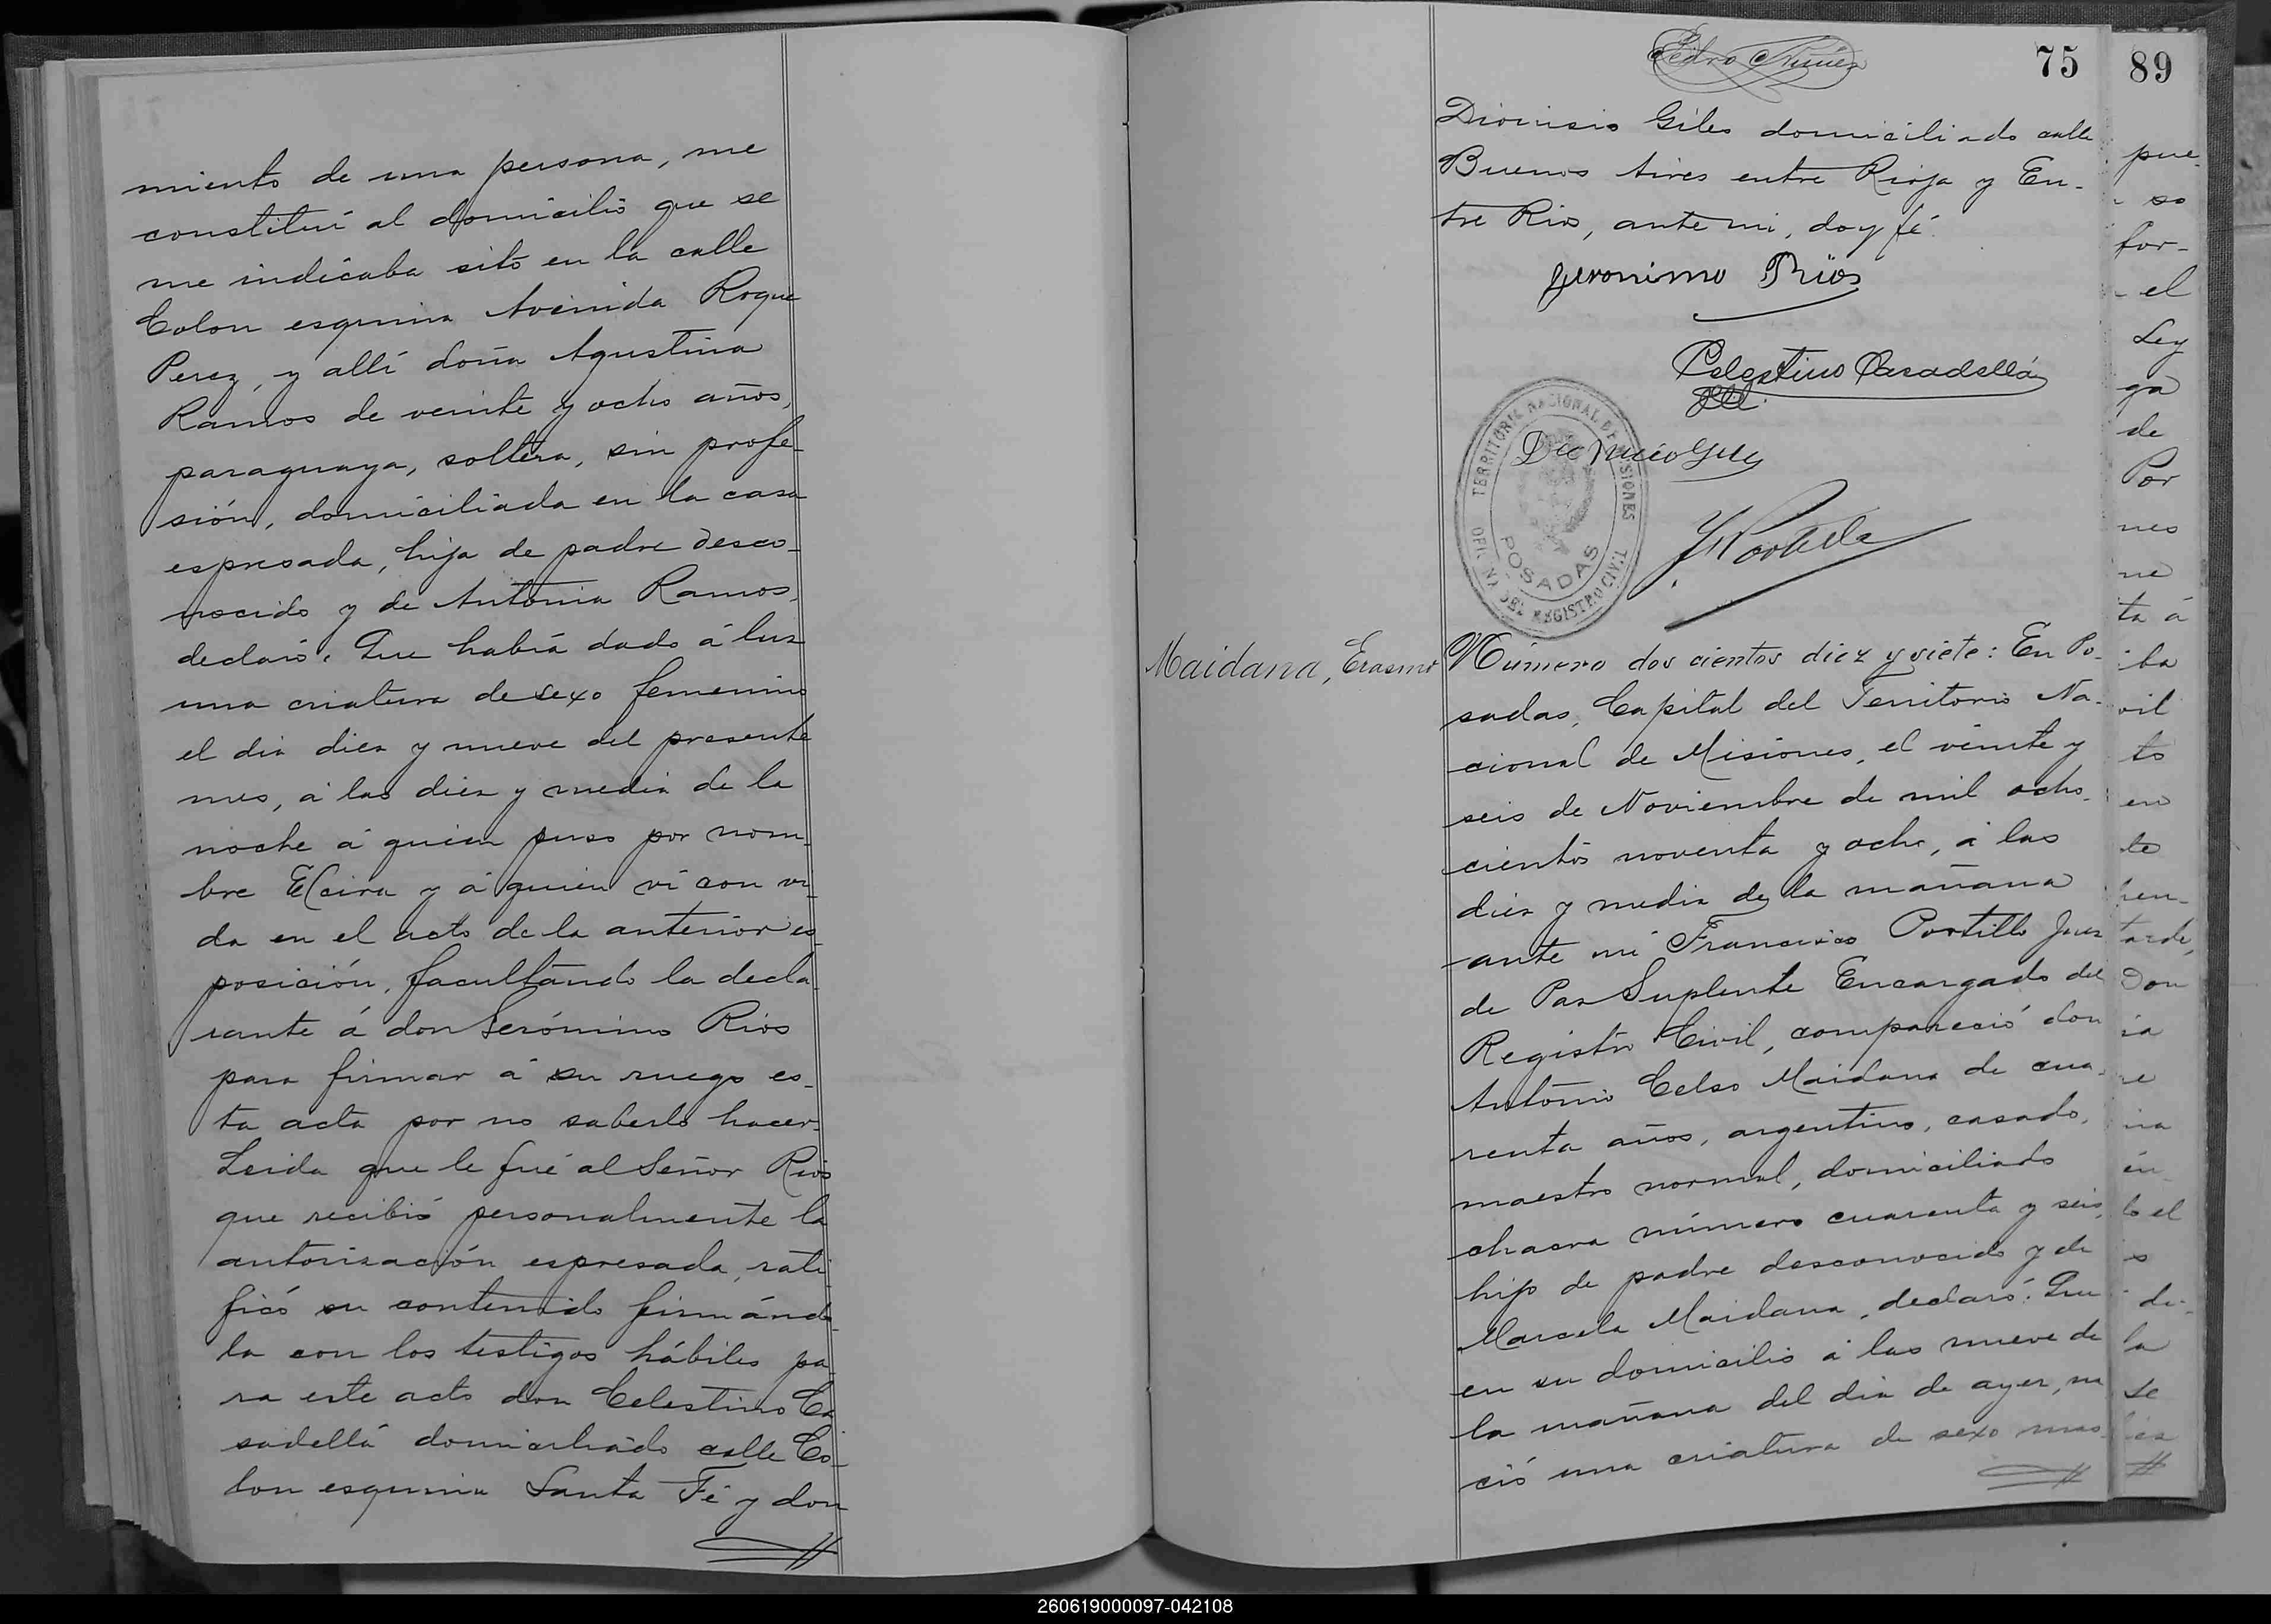 miento de una persona, me
constituí al domicilio que se
me indicaba sito en la calle
Colon esquina Avenida Roque
Perez, y allí doña Agustina
Ramos de veinte y ocho años,
paraguaya, soltera, sin profe-
sión, domiciliada en la casa
espresada, hija de padre desco-
nocido y de Antonia Ramos,
declaró: Que habrá dado á luz
una criatura de sexo femenino
el dia diez y nueve del presente
mes, á las diez y media de la
noche á quien puso por nom-
bre Elcira y á quien ví con vi-
da en el acto de la anterior es-
posición, facultando la decla-
rante á don Gerónimo Rios
para firmar á su ruego es-
ta acta por no saberlo hacer.
Leida que le fué al Señor Rios
que recibió personalmente la
autorización espresada, rati-
ficó su contenido firmándo-
la con los testigos hábiles pa-
ra este acto don Celestino Ca-
sadellá domiciliado calle Co-
lon esquina Santa Fé y don
Pedro Nuñez
75
Dionisio Giles domiciliado calle
Buenos Aires entre Rioja y En-
tre Rios, ante mi, doy fé.
Geronimo Rios
Celestino Casadellá
TERRITORIO NACIONAL DE MISIONES
POSADAS
OFICINA DEL REGISTRO CIVIL
Maidana, Erasmo
Número dos cientos diez y siete: En Po-
sadas, Capital del Territorio Na-
cional de Misiones, el veinte y
seis de Noviembre de mil ocho-
cientos noventa y ocho, á las
diez y media de la mañana
ante mí Francisco Portillo Juez
de Paz Suplente Encargado del
Registro Civil, compareció don
Antonio Celso Maidana de cua-
renta años, argentino, casado,
maestro normal, domiciliado
chacra número cuarenta y seis,
hijo de padre desconocido y de
Marcela Maidana, declaró: Que
en su domicilio á las nueve de
la mañana del dia de ayer, na
ció una criatura de sexo mas-
89
pue-
so
for-
el
Ley
ga
de
Por
nes
ne
ta á
iba
vil
to
en
te
hen-
tarde,
Don
ia
re
na
en
lo el
o
de-
la
se
260619000097-042108